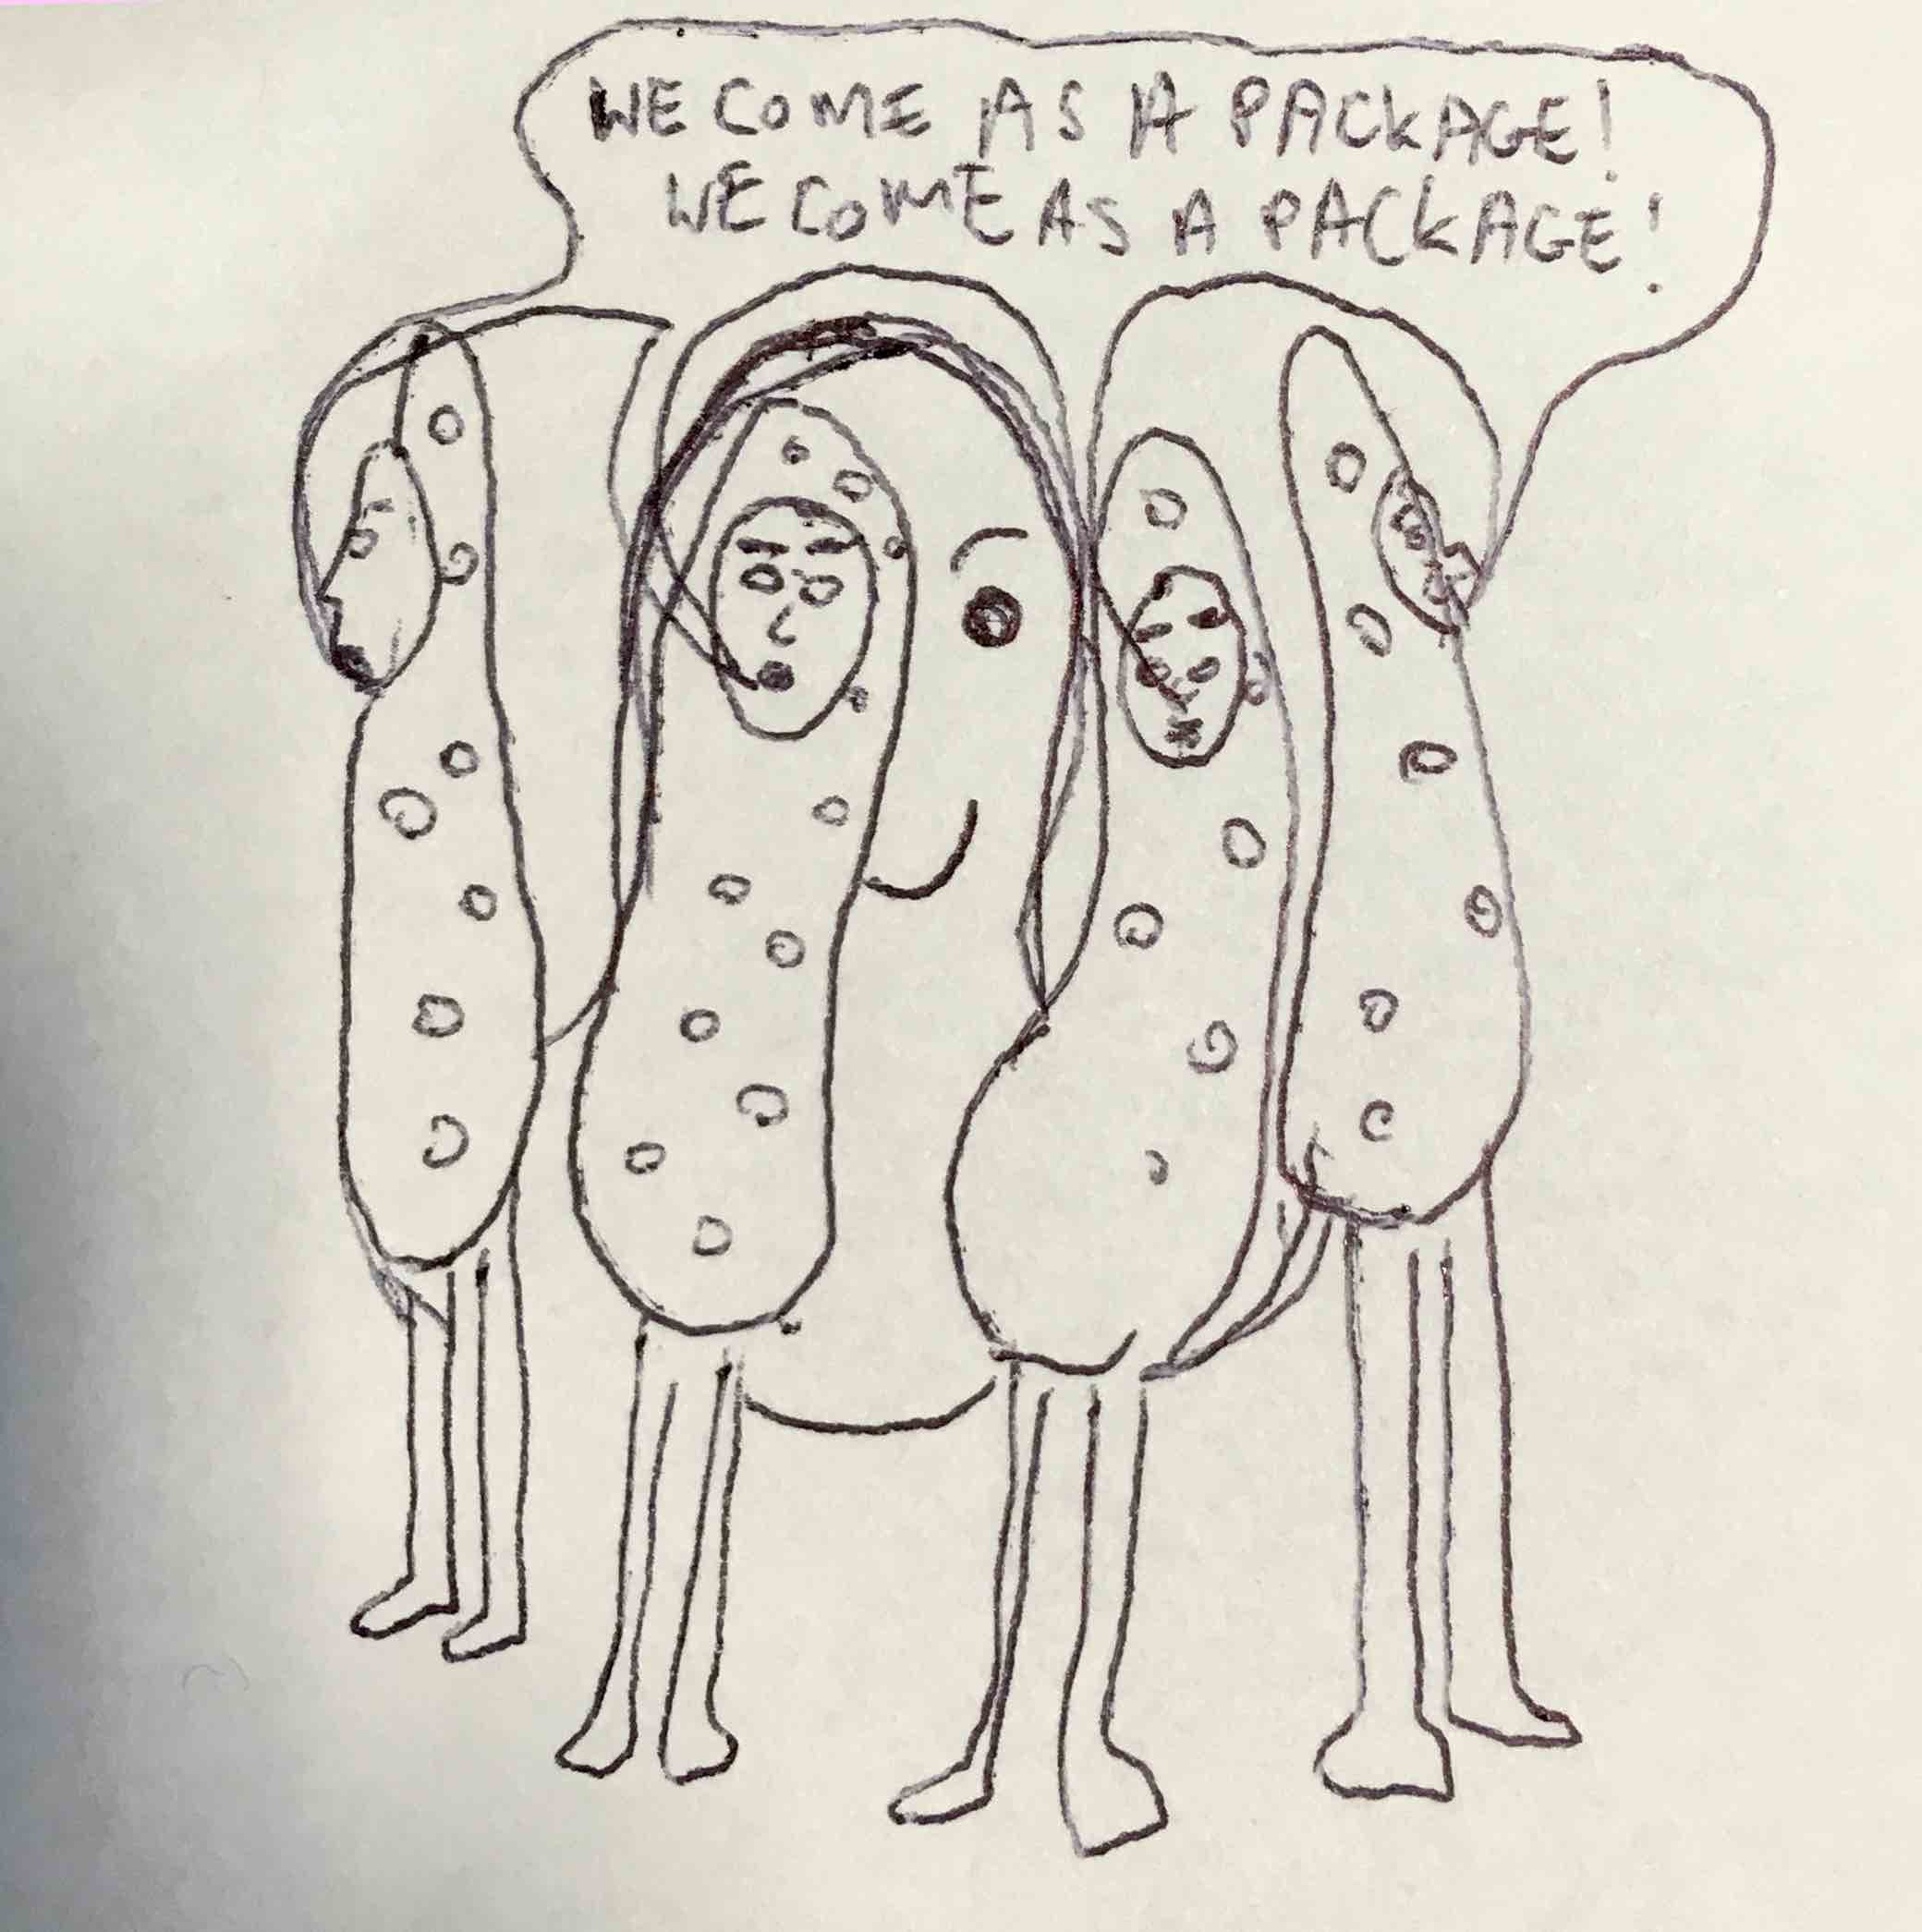 WE COME AS A PACKAGE!
WE COME AS A PACKAGE!